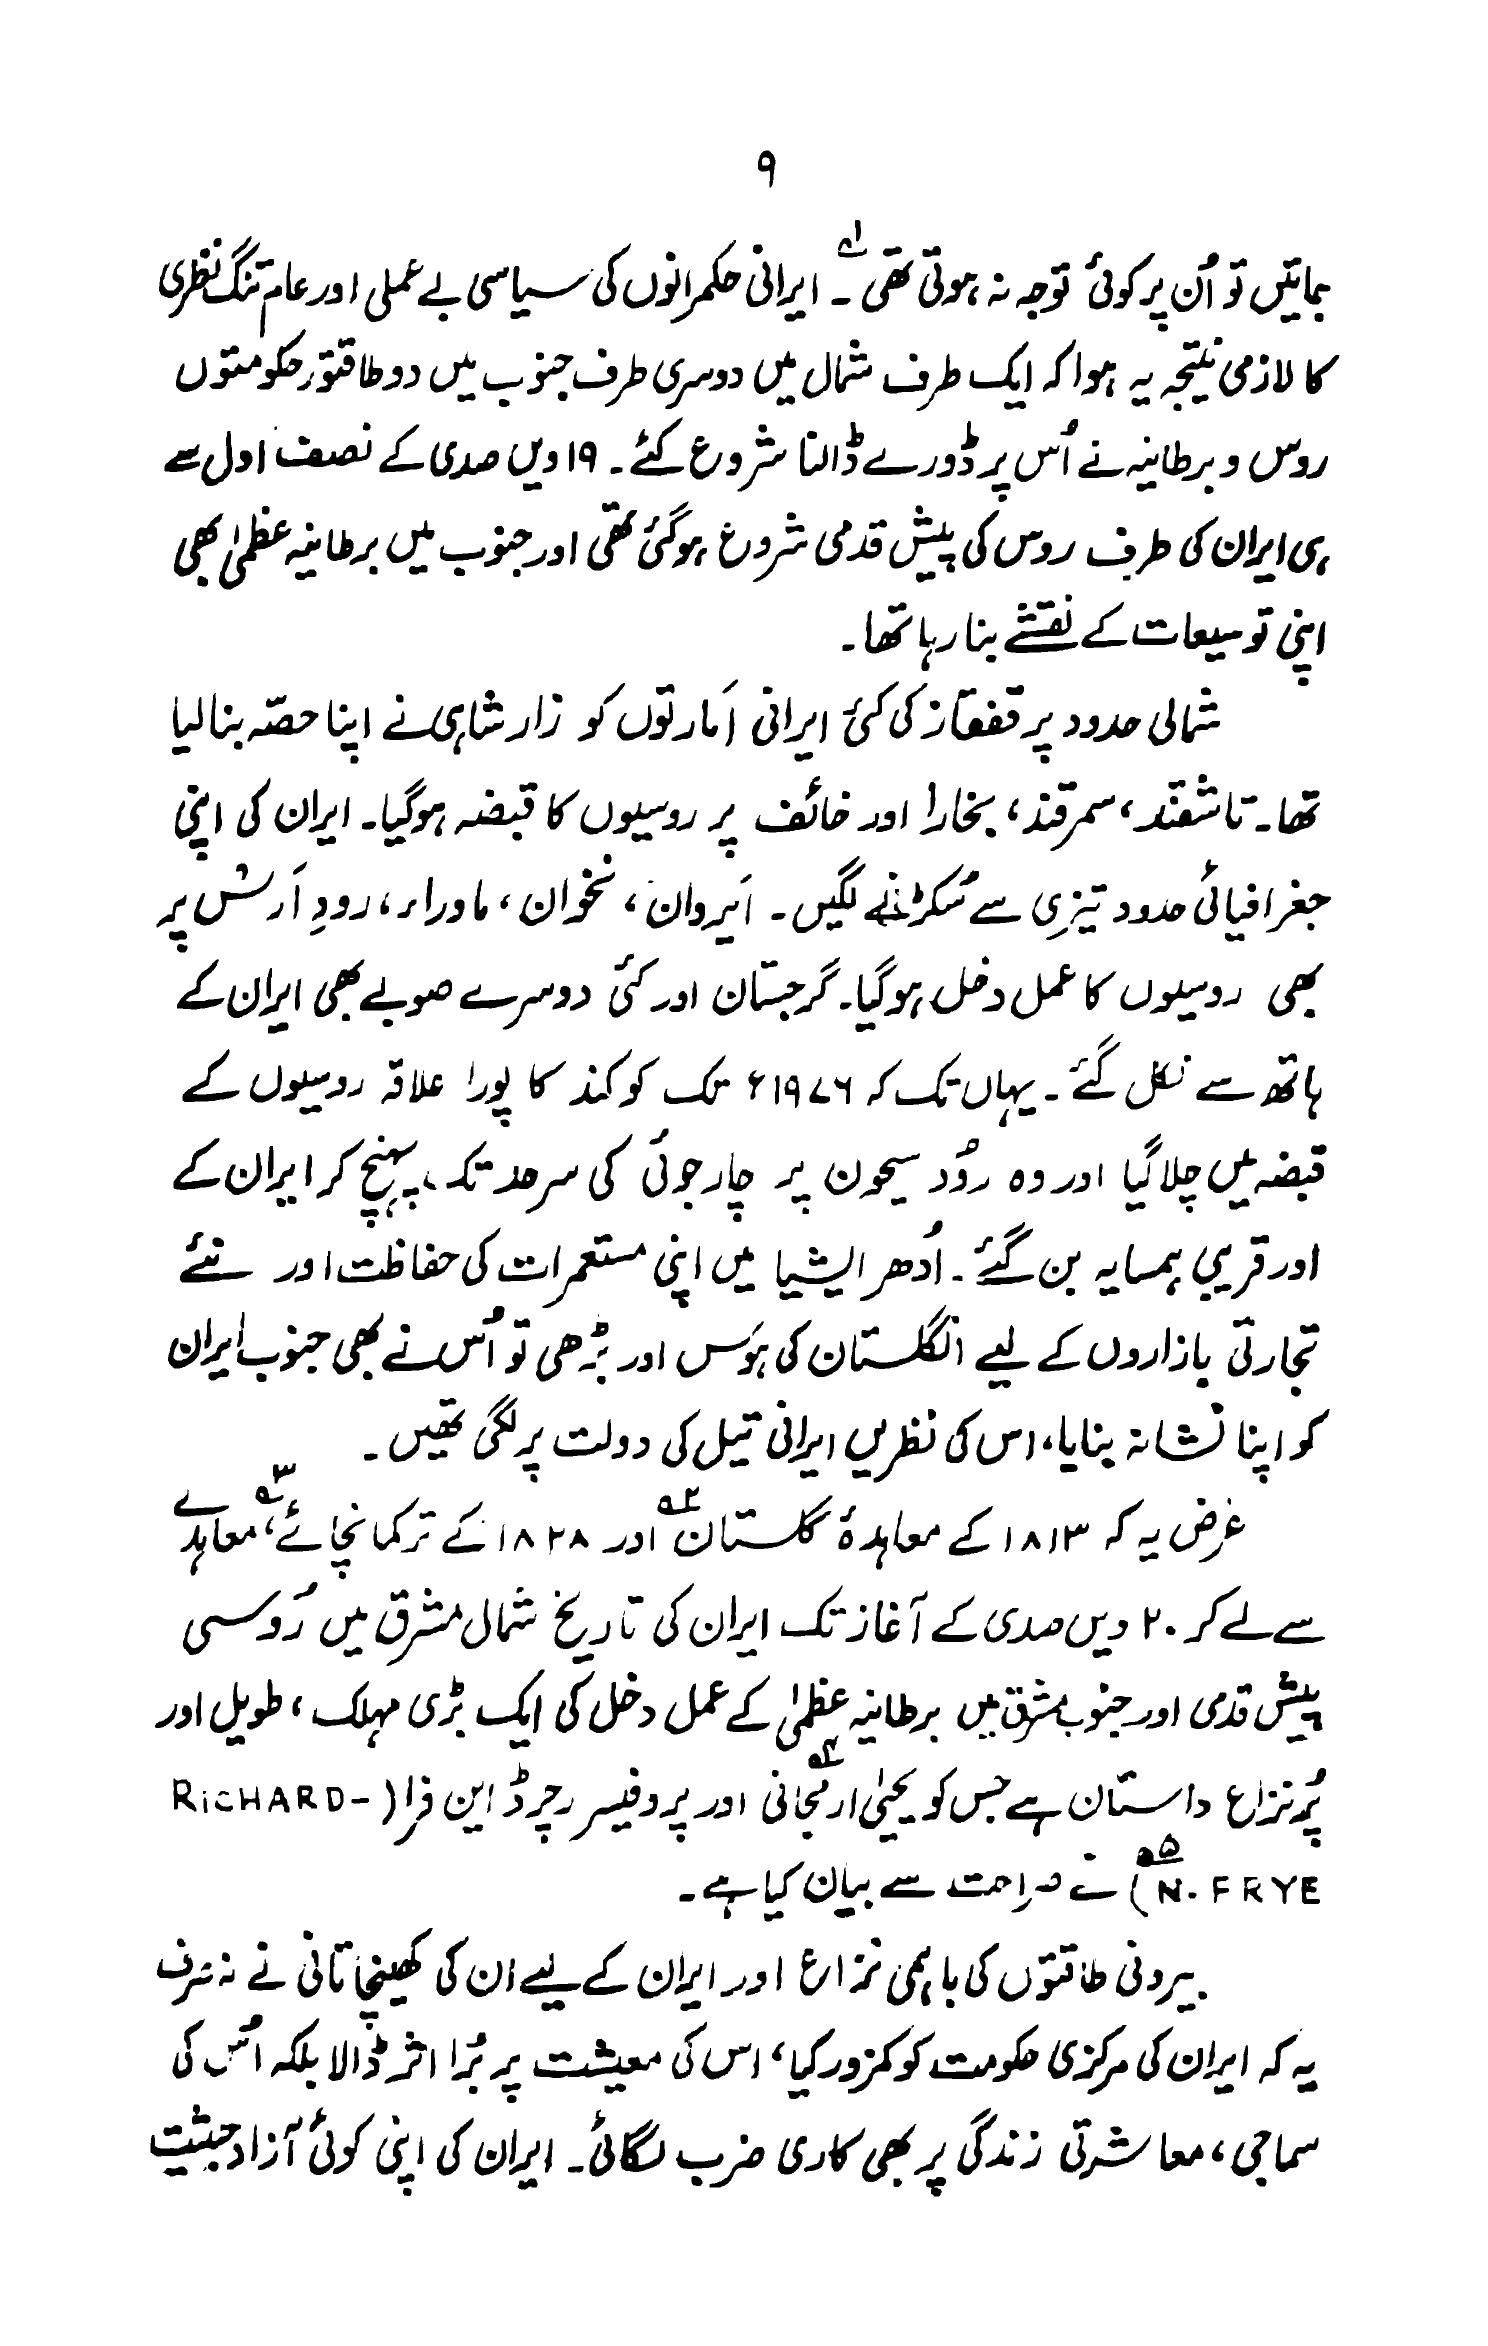 ۹
جاتیں تو اُن پر کوئی توجہ نہ ہوتی تھی ۱؎۔ ایرانی حکمرانوں کی سیاسی بے عملی اور عام تنگ نظری
کا لازمی نتیجہ یہ ہوا کہ ایک طرف شمال میں دوسری طرف جنوب میں دو طاقتور حکومتوں
روس و برطانیہ نے اُس پر ڈورے ڈالنا شروع کئے۔ ۱۹ویں صدی کے نصف اول سے
ہی ایران کی طرف روس کی پیش قدمی شروع ہوگئی تھی اور جنوب میں برطانیہ عظمیٰ بھی
اپنی توسیعات کے نقشے بنا رہا تھا۔
شمالی حدود پر قفقاز کی کئی ایرانی اَمارتوں کو زار شاہی نے اپنا حصّہ بنا لیا
تھا۔ تاشقند، سمرقند، بخارا اور خائف پر روسیوں کا قبضہ ہوگیا۔ ایران کی اپنی
جغرافیائی حدود تیزی سے سُکڑنے لگیں۔ اَیروان، نخوان، ماوراء، رودِ اَرش پر
بھی روسیوں کا عمل دخل ہوگیا۔ گرجستان اور کئی دوسرے صوبے بھی ایران کے
ہاتھ سے نکل گئے۔ یہاں تک کہ ۱۹۷۶ء تک کوکند کا پورا علاقہ روسیوں کے
قبضہ میں چلا گیا اور وہ رُود سیحون پر چار جوئی کی سرحد تک پہنچ کر ایران کے
اور قریبی ہمسایہ بن گئے۔ اُدھر ایشیا میں اپنی مستعمرات کی حفاظت اور نئے
تجارتی بازاروں کے لیے انگلستان کی ہَوس اور بڑھی تو اُس نے بھی جنوب ایران
کو اپنا نشانہ بنایا، اس کی نظریں ایرانی تیل کی دولت پر لگی تھیں۔
غرض یہ کہ ۱۸۱۳ کے معاہدۂ گلستان ۲؎ اور ۱۸۲۸ کے ترکمانچائے ۳؎، معاہدے
سے لے کر ۲۰ ویں صدی کے آغاز تک ایران کی تاریخ شمال مشرق میں رُوسی
پیش قدمی اور جنوب مشرق میں برطانیہ عظمیٰ کے عمل دخل کی ایک بڑی مہلک، طویل اور
پُر نزاع داستان ہے جس کو یحییٰ ارمجانی ۴؎ اور پروفیسر رچرڈ این فرا (RICHARD-
N. FRYE) ۵؎ نے صراحت سے بیان کیا ہے۔
بیرونی طاقتوں کی باہمی نزاع اور ایران کے لیے ان کی کھینچا تانی نے نہ صرف
یہ کہ ایران کی مرکزی حکومت کو کمزور کیا، اس کی معیشت پر بُرا اثر ڈالا بلکہ اُس کی
سماجی، معاشرتی زندگی پر بھی کاری ضرب لگائی۔ ایران کی اپنی کوئی آزاد حیثیت